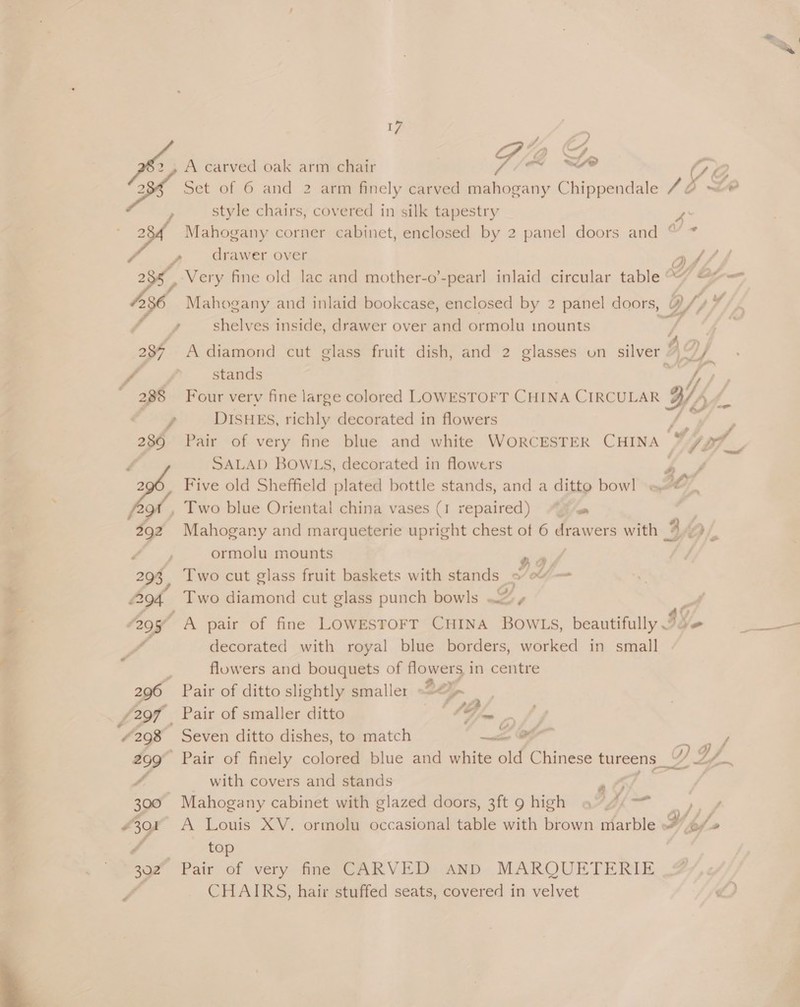 17
282 A carved oak arm chair
283 Set of 6 and 2 arm finely carved mahogany Chippendale
style chairs, covered in silk tapestry
284 Mahogany corner cabinet, enclosed by 2 panel doors and
drawer over
285 Very fine old lac and mother-o'-pearl inlaid circular table
286 Mahogany and inlaid bookcase, enclosed by 2 panel doors,
shelves inside, drawer over and ormolu mounts
287 A diamond cut glass fruit dish, and 2 glasses on silver
stands
288 Four very fine large colored LOWESTOFT CHINA CIRCULAR
DISHES, richly decorated in flowers
289 Pair of very fine blue and white WORCESTER CHINA
SALAD BOWLS, decorated in flowers
290 Five old Sheffield plated bottle stands, and a ditto bowl
291 Two blue Oriental china vases (1 repaired)
292 Mahogany and marqueterie upright chest of 6 drawers with
ormolu mounts
293 Two cut glass fruit baskets with stands
294 Two diamond cut glass punch bowls
295 A pair of fine LOWESTOFT CHINA BOWLS, beautifully
decorated with royal blue borders, worked in small
flowers and bouquets of flowers in centre
296 Pair of ditto slightly smaller
297 Pair of smaller ditto
298 Seven ditto dishes, to match
299 Pair of finely colored blue and white old Chinese tureens
with covers and stands
300 Mahogany cabinet with glazed doors, 3ft 9 high
301 A Louis XV. ormolu occasional table with brown marble
top
302 Pair of very fine CARVED AND MARQUETERIE
CHAIRS, hair stuffed seats, covered in velvet